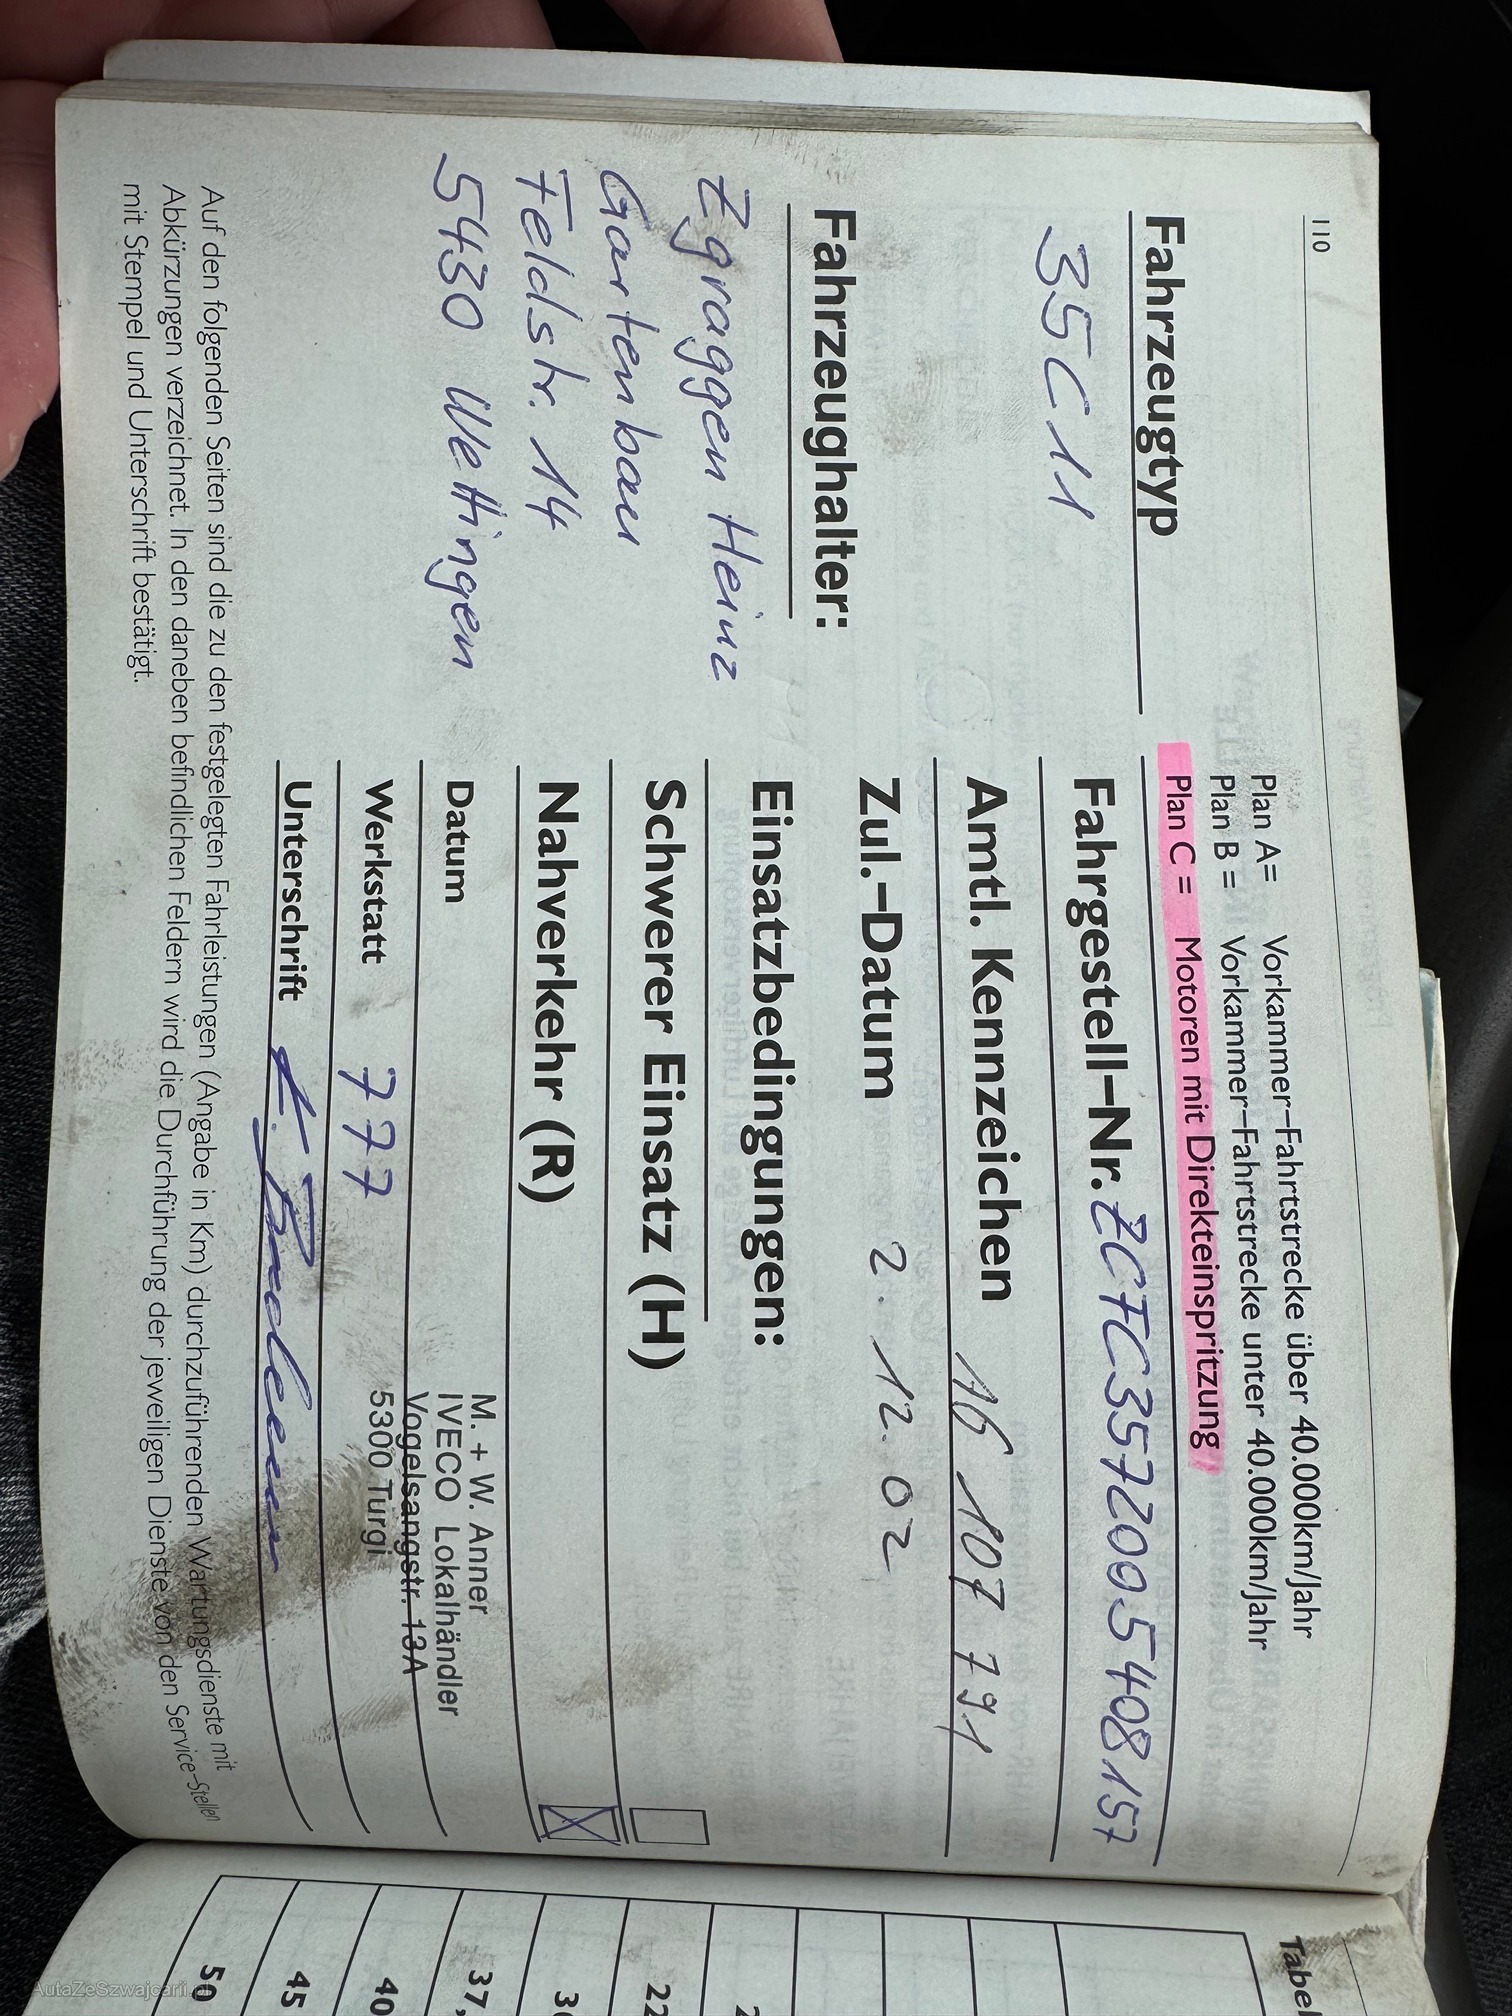 110
Fahrzeugtyp
35C11
Fahrzeughalter:
Zgraggen Heinz
Gartenbau
Feldstr. 14
5430 Wettingen
Plan A= Vorkammer-Fahrtstrecke über 40.000km/Jahr
Plan B = Vorkammer-Fahrtstrecke unter 40.000km/Jahr
Plan C = Motoren mit Direkteinspritzung
Fahrgestell-Nr. ZCFC3572005408157
Amtl. Kennzeichen 16 107 791
Zul.-Datum 2. 12. 02
Einsatzbedingungen:
Schwerer Einsatz (H)
Nahverkehr (R)
Datum
Werkstatt 777
Unterschrift
M. + W. Anner
IVECO Lokalhändler
Vogelsangstr. 13A
5300 Turgi
Auf den folgenden Seiten sind die zu den festgelegten Fahrleistungen (Angabe in Km) durchzuführenden Wartungsdienste mit
Abkürzungen verzeichnet. In den daneben befindlichen Feldern wird die Durchführung der jeweiligen Dienste von den Service-Stellen
mit Stempel und Unterschrift bestätigt.
50
45
40
37,
22
AutaZeSzwajcarii.pl